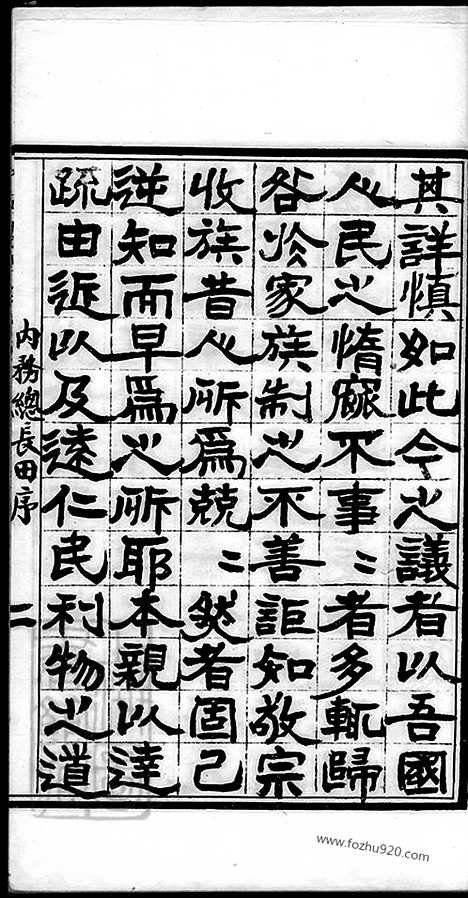 其詳慎如此今之議者以吾國
人民之惰窳不事〻者多輒歸
咎於家族制之不善詎如敬宗
收族昔人所爲兢〻然者固已
逆知而早爲之所耶本親以達
疏由近以及遠仁民利物之道
內務總長田序
二
www.fozhu920.com